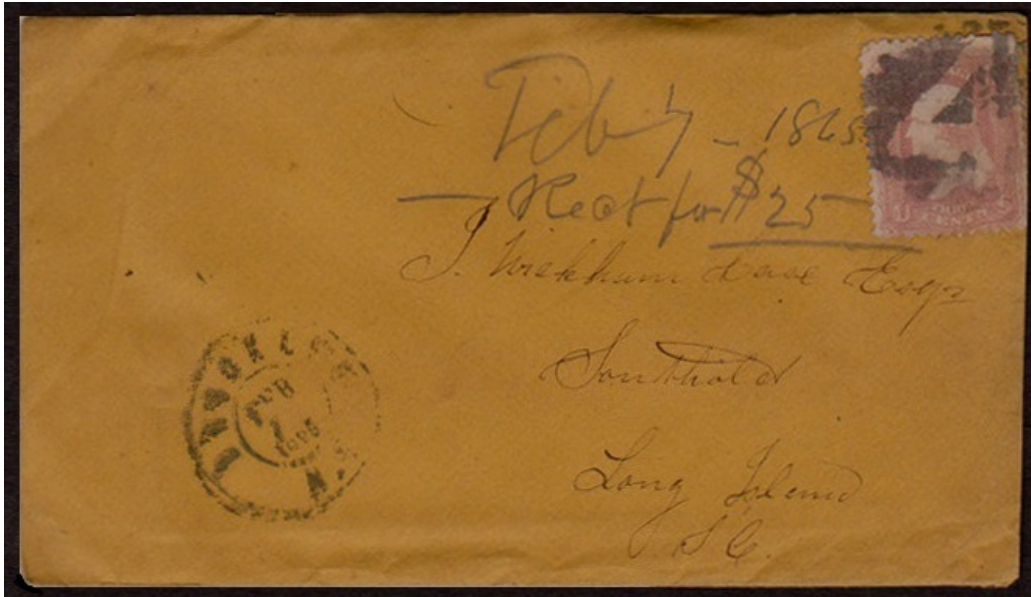 Feb 7 - 1865
Rect for $25
J. Wickham Case Esqr
Southold
Long Island
S C.
FEB
7
1865
N.Y.
U
3